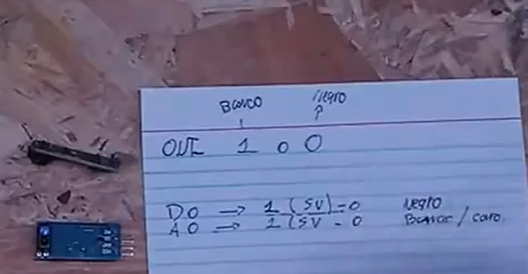 Blanco negro
OUT 1 o 0
DO → 1 (5V) - 0 Negro
AO → 1 (5V - 0 Blanco /